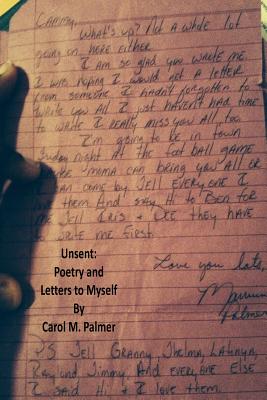 Cammy,
What's up? Not a whole lot
going on here either
I am so glad you wrote me
I was hoping I would get a letter
from someone I hadn't forgotten to
write you all I just haven't had time
to write I really miss you all, too.
I'm going to be in town
Friday night At the foot ball game
mama can bring you All or
I can come by Tell everyone I
love them And say Hi to Ben for
me Tell Iris & Lee they have
to write me first.
Love you lots,
Palmer
Unsent:
Poetry and
Letters to Myself
By
Carol M. Palmer
PS Tell Granny, Thelma,
Ray and Jimmy, And everyone Else
I said Hi & I love them.